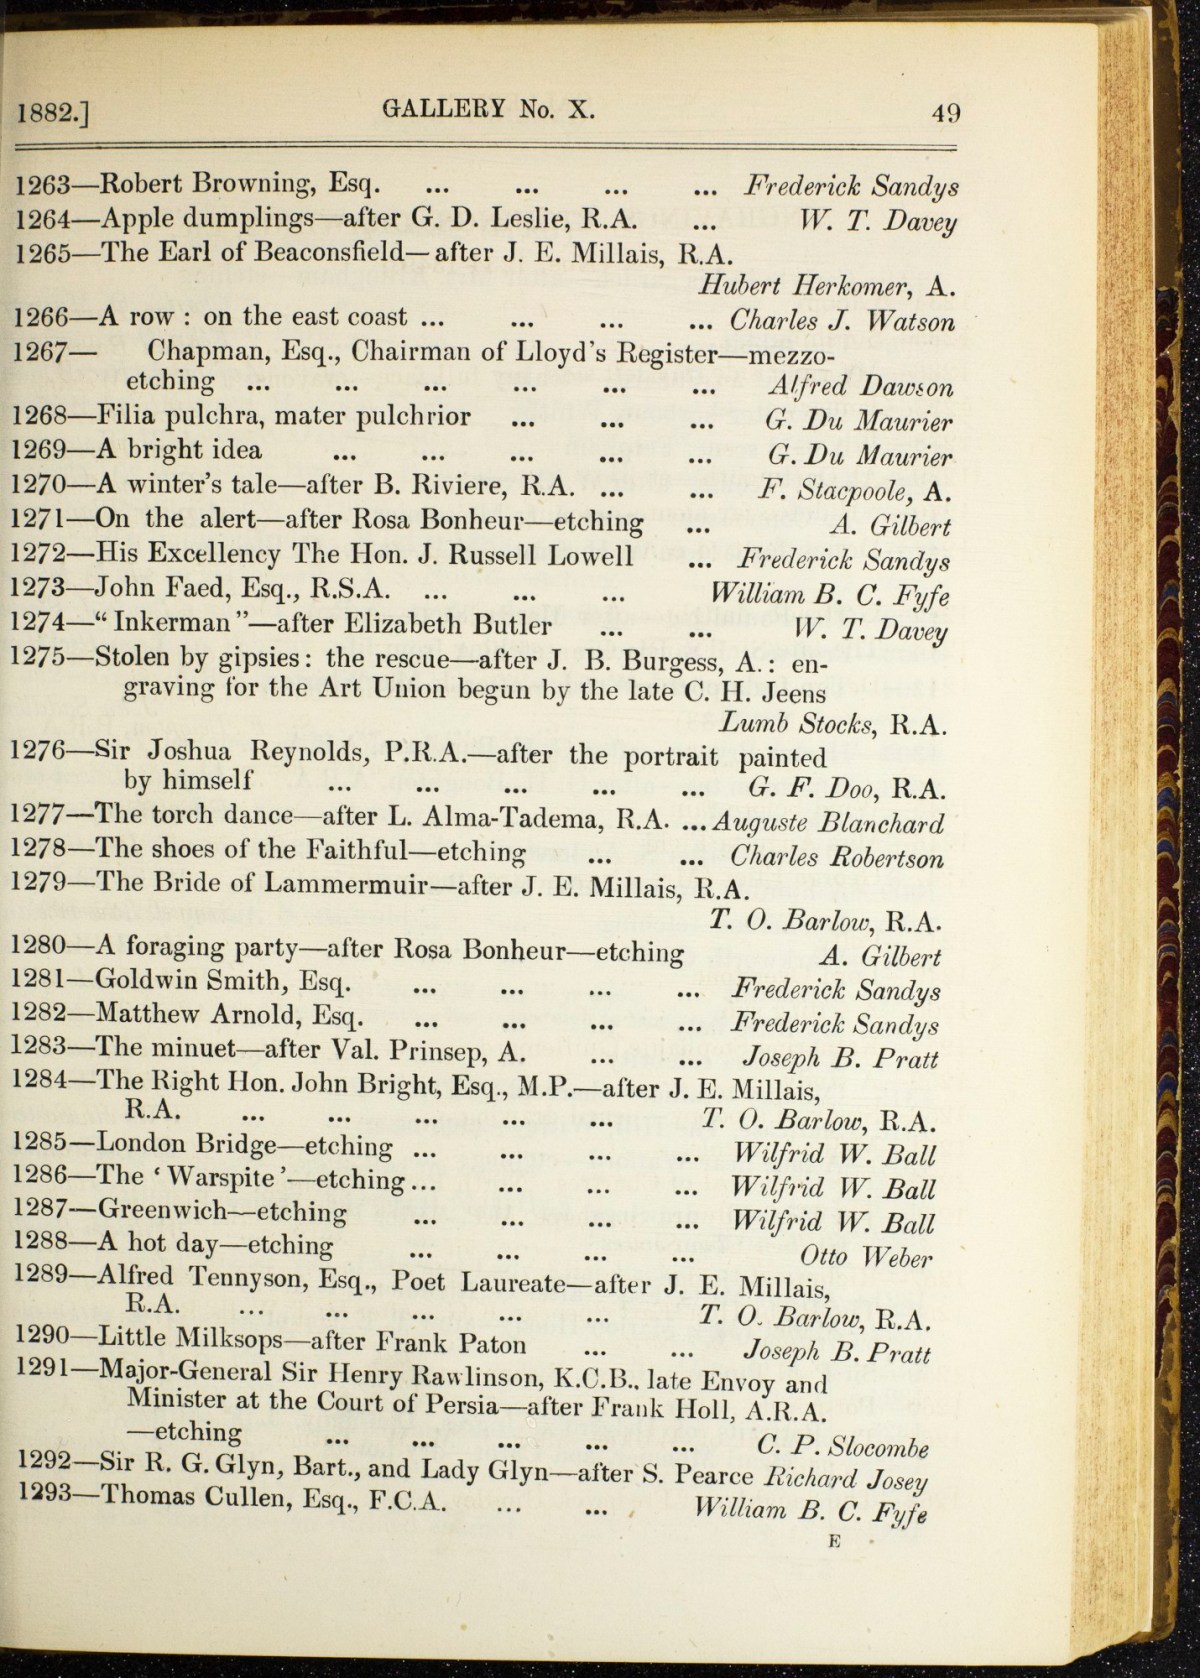 1882.] GALLERY No. X. 49
1263—Robert Browning, Esq. ... ... ... ... Frederick Sandys
1264—Apple dumplings—after G. D. Leslie, R.A. ... W. T. Davey
1265—The Earl of Beaconsfield—after J. E. Millais, R.A.
Hubert Herkomer, A.
1266—A row : on the east coast ... ... ... ... Charles J. Watson
1267— Chapman, Esq., Chairman of Lloyd's Register—mezzo-
etching ... ... ... ... ... ... Alfred Dawson
1268—Filia pulchra, mater pulchrior ... ... ... G. Du Maurier
1269—A bright idea ... ... ... ... ... G. Du Maurier
1270—A winter's tale—after B. Riviere, R.A. ... ... F. Stacpoole, A.
1271—On the alert—after Rosa Bonheur—etching ... A. Gilbert
1272—His Excellency The Hon. J. Russell Lowell ... Frederick Sandys
1273—John Faed, Esq., R.S.A. ... ... ... William B. C. Fyfe
1274—“Inkerman”—after Elizabeth Butler ... ... W. T. Davey
1275—Stolen by gipsies: the rescue—after J. B. Burgess, A.: en-
graving for the Art Union begun by the late C. H. Jeens
Lumb Stocks, R.A.
1276—Sir Joshua Reynolds, P.R.A.—after the portrait painted
by himself ... ... ... ... ... G. F. Doo, R.A.
1277—The torch dance—after L. Alma-Tadema, R.A. ... Auguste Blanchard
1278—The shoes of the Faithful—etching ... ... Charles Robertson
1279—The Bride of Lammermuir—after J. E. Millais, R.A.
T. O. Barlow, R.A.
1280—A foraging party—after Rosa Bonheur—etching A. Gilbert
1281—Goldwin Smith, Esq. ... ... ... ... Frederick Sandys
1282—Matthew Arnold, Esq. ... ... ... ... Frederick Sandys
1283—The minuet—after Val. Prinsep, A. ... ... Joseph B. Pratt
1284—The Right Hon. John Bright, Esq., M.P.—after J. E. Millais,
R.A. ... ... ... ... ... T. O. Barlow, R.A.
1285—London Bridge—etching ... ... ... ... Wilfrid W. Ball
1286—The ‘Warspite’—etching ... ... ... ... Wilfrid W. Ball
1287—Greenwich—etching ... ... ... ... Wilfrid W. Ball
1288—A hot day—etching ... ... ... ... Otto Weber
1289—Alfred Tennyson, Esq., Poet Laureate—after J. E. Millais,
R.A. ... ... ... ... ... T. O. Barlow, R.A.
1290—Little Milksops—after Frank Paton ... ... Joseph B. Pratt
1291—Major-General Sir Henry Rawlinson, K.C.B., late Envoy and
Minister at the Court of Persia—after Frank Holl, A.R.A.
—etching ... ... ... ... ... C. P. Slocombe
1292—Sir R. G. Glyn, Bart., and Lady Glyn—after S. Pearce Richard Josey
1293—Thomas Cullen, Esq., F.C.A. ... ... William B. C. Fyfe
E